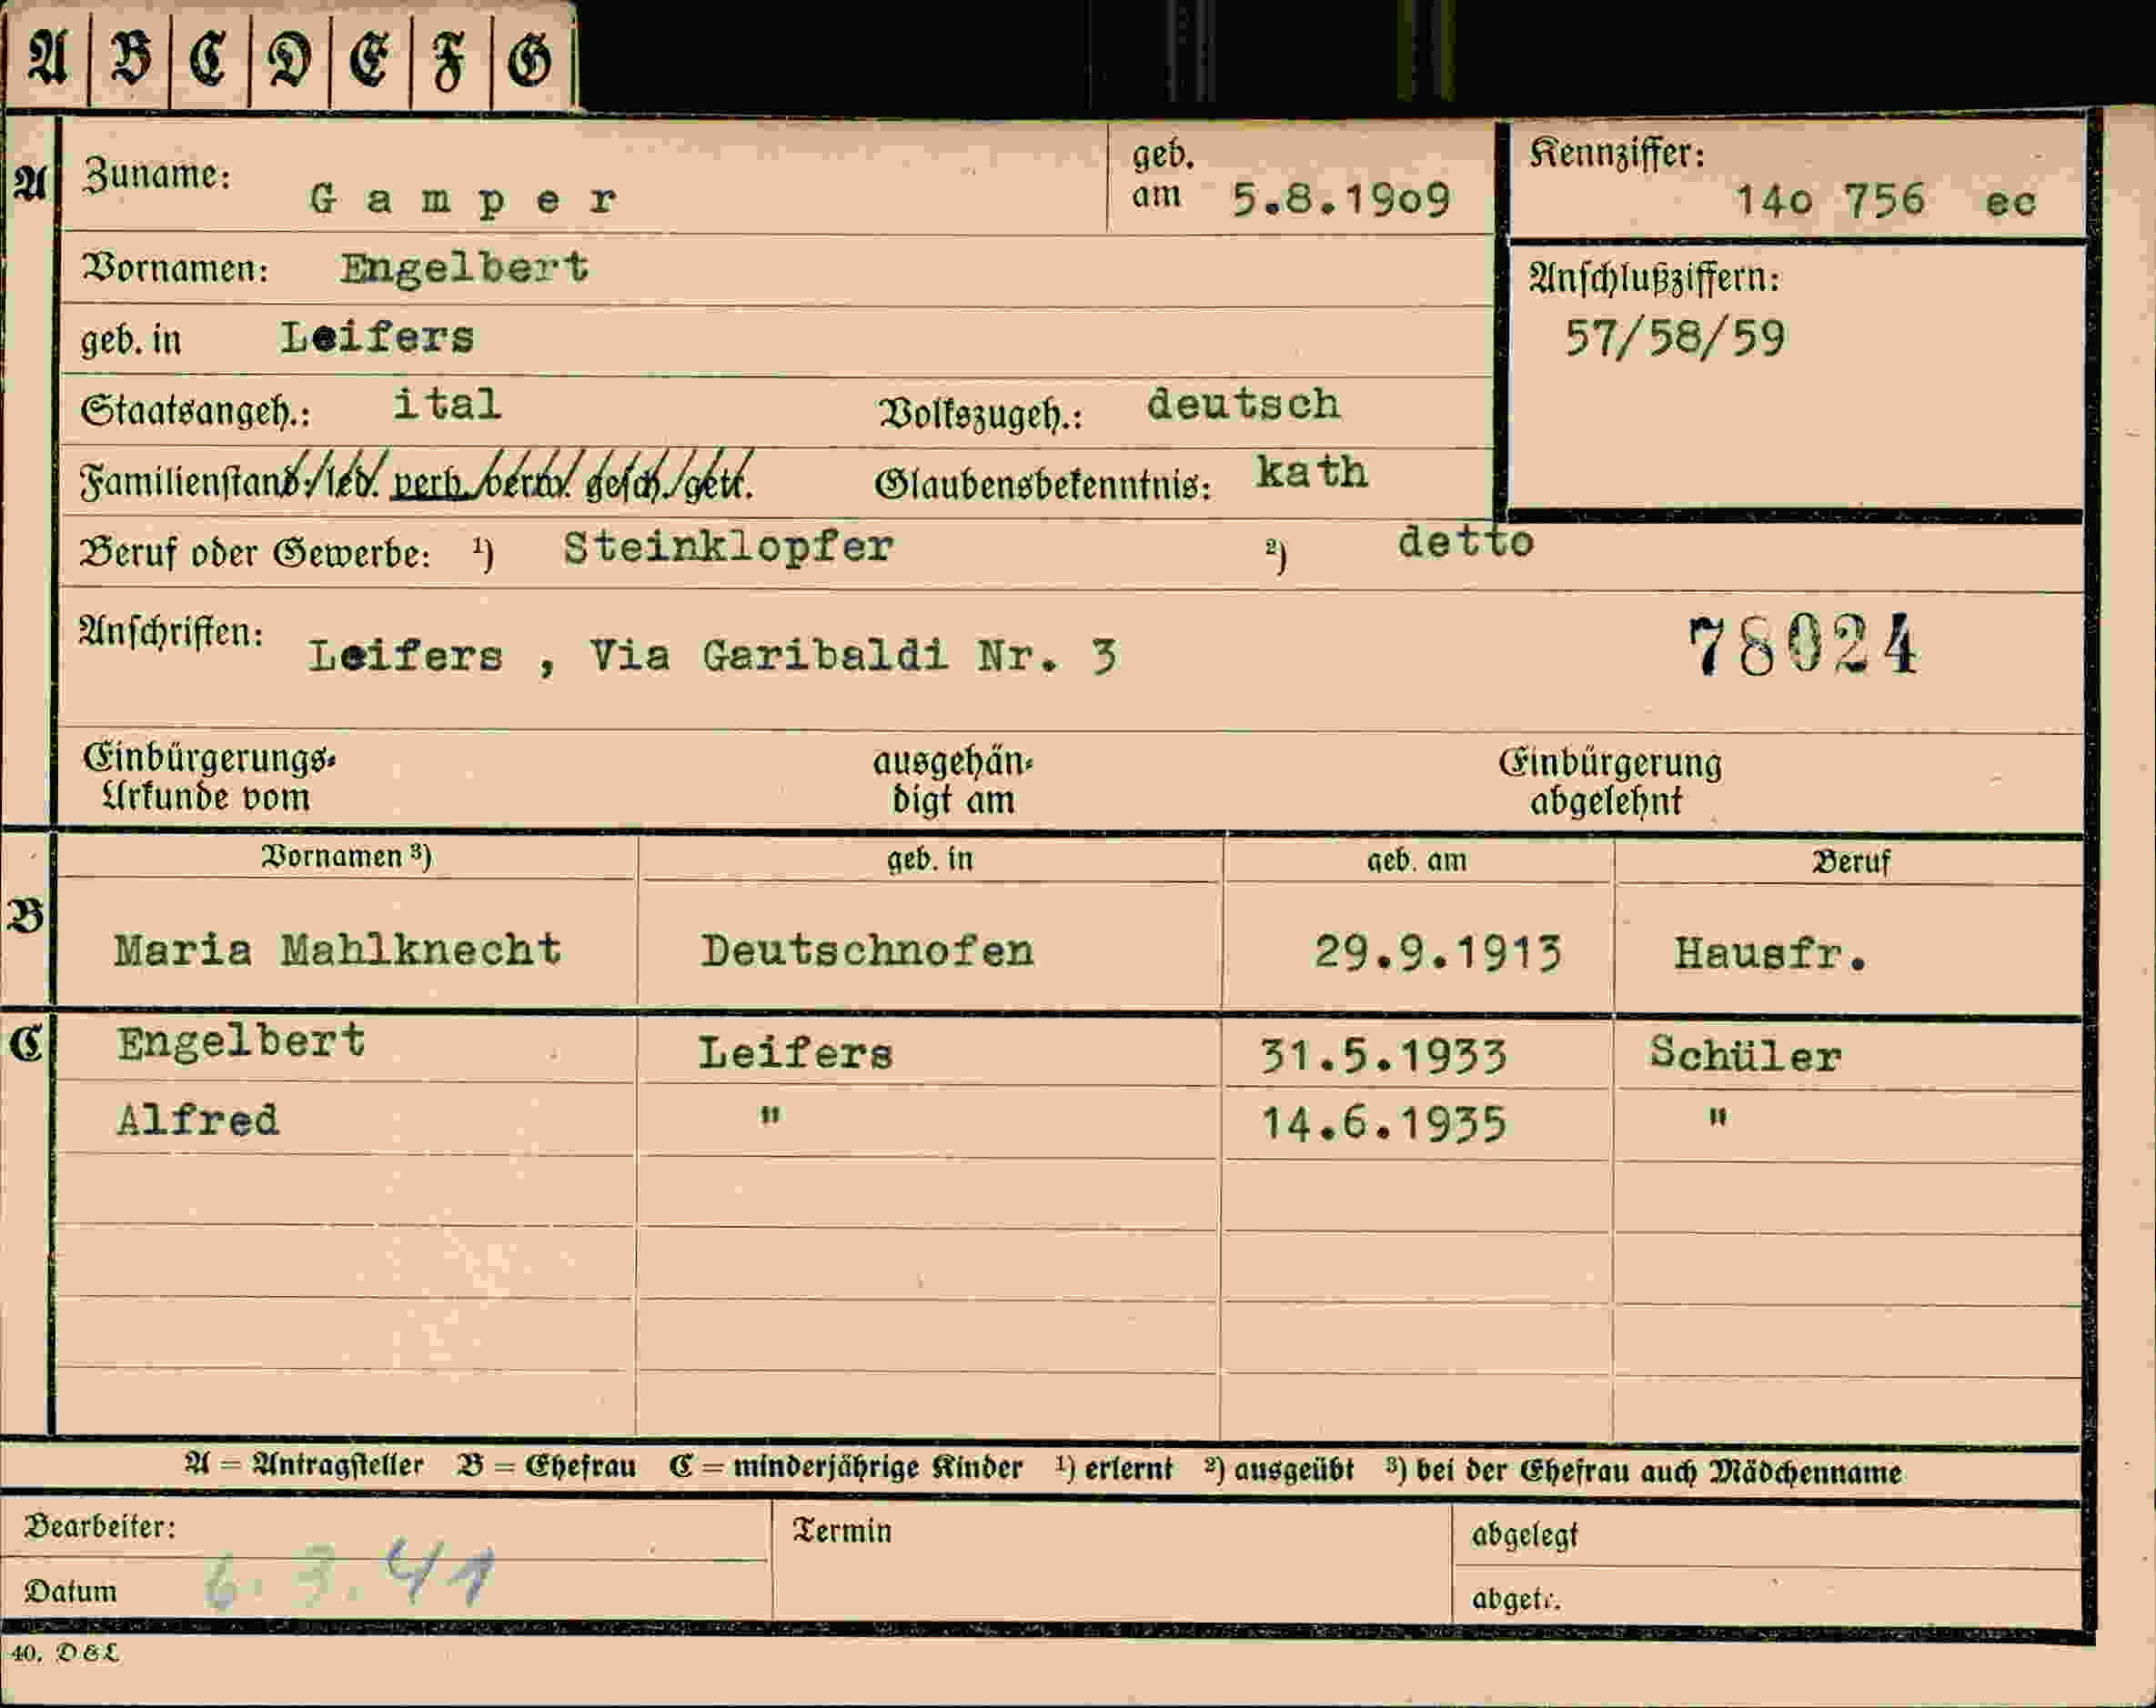 A B C D E F G
A Zuname: Gamper geb. am 5.8.1909 Kennziffer: 140 756 ec
Vornamen: Engelbert
Anschlußziffern:
geb. in Leifers 57/58/59
Staatsangeh.: ital Volkszugeh.: deutsch
Familienstand: led. verh. verw. gesch. getr. Glaubensbekenntnis: kath
Beruf oder Gewerbe: ¹) Steinklopfer ²) detto
Anschriften: Leifers , Via Garibaldi Nr. 3 78024
Einbürgerungs- ausgehän- Einbürgerung
Urkunde vom digt am abgelehnt
Vornamen ³) geb. in geb. am Beruf
B Maria Mahlknecht Deutschnofen 29.9.1913 Hausfr.
C Engelbert Leifers 31.5.1933 Schüler
Alfred " 14.6.1935 "
A = Antragsteller B = Ehefrau C = minderjährige Kinder ¹) erlernt ²) ausgeübt ³) bei der Ehefrau auch Mädchenname
Bearbeiter: Termin abgelegt
Datum 6. 3. 41 abgetr.
40. D & L